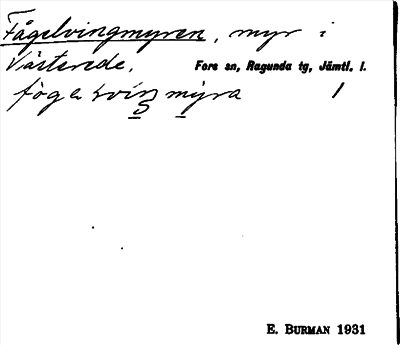 Fågelvingmyren, myr i
Västerede, Fors sn, Ragunda tg, Jämtl. l.
E. BURMAN 1931